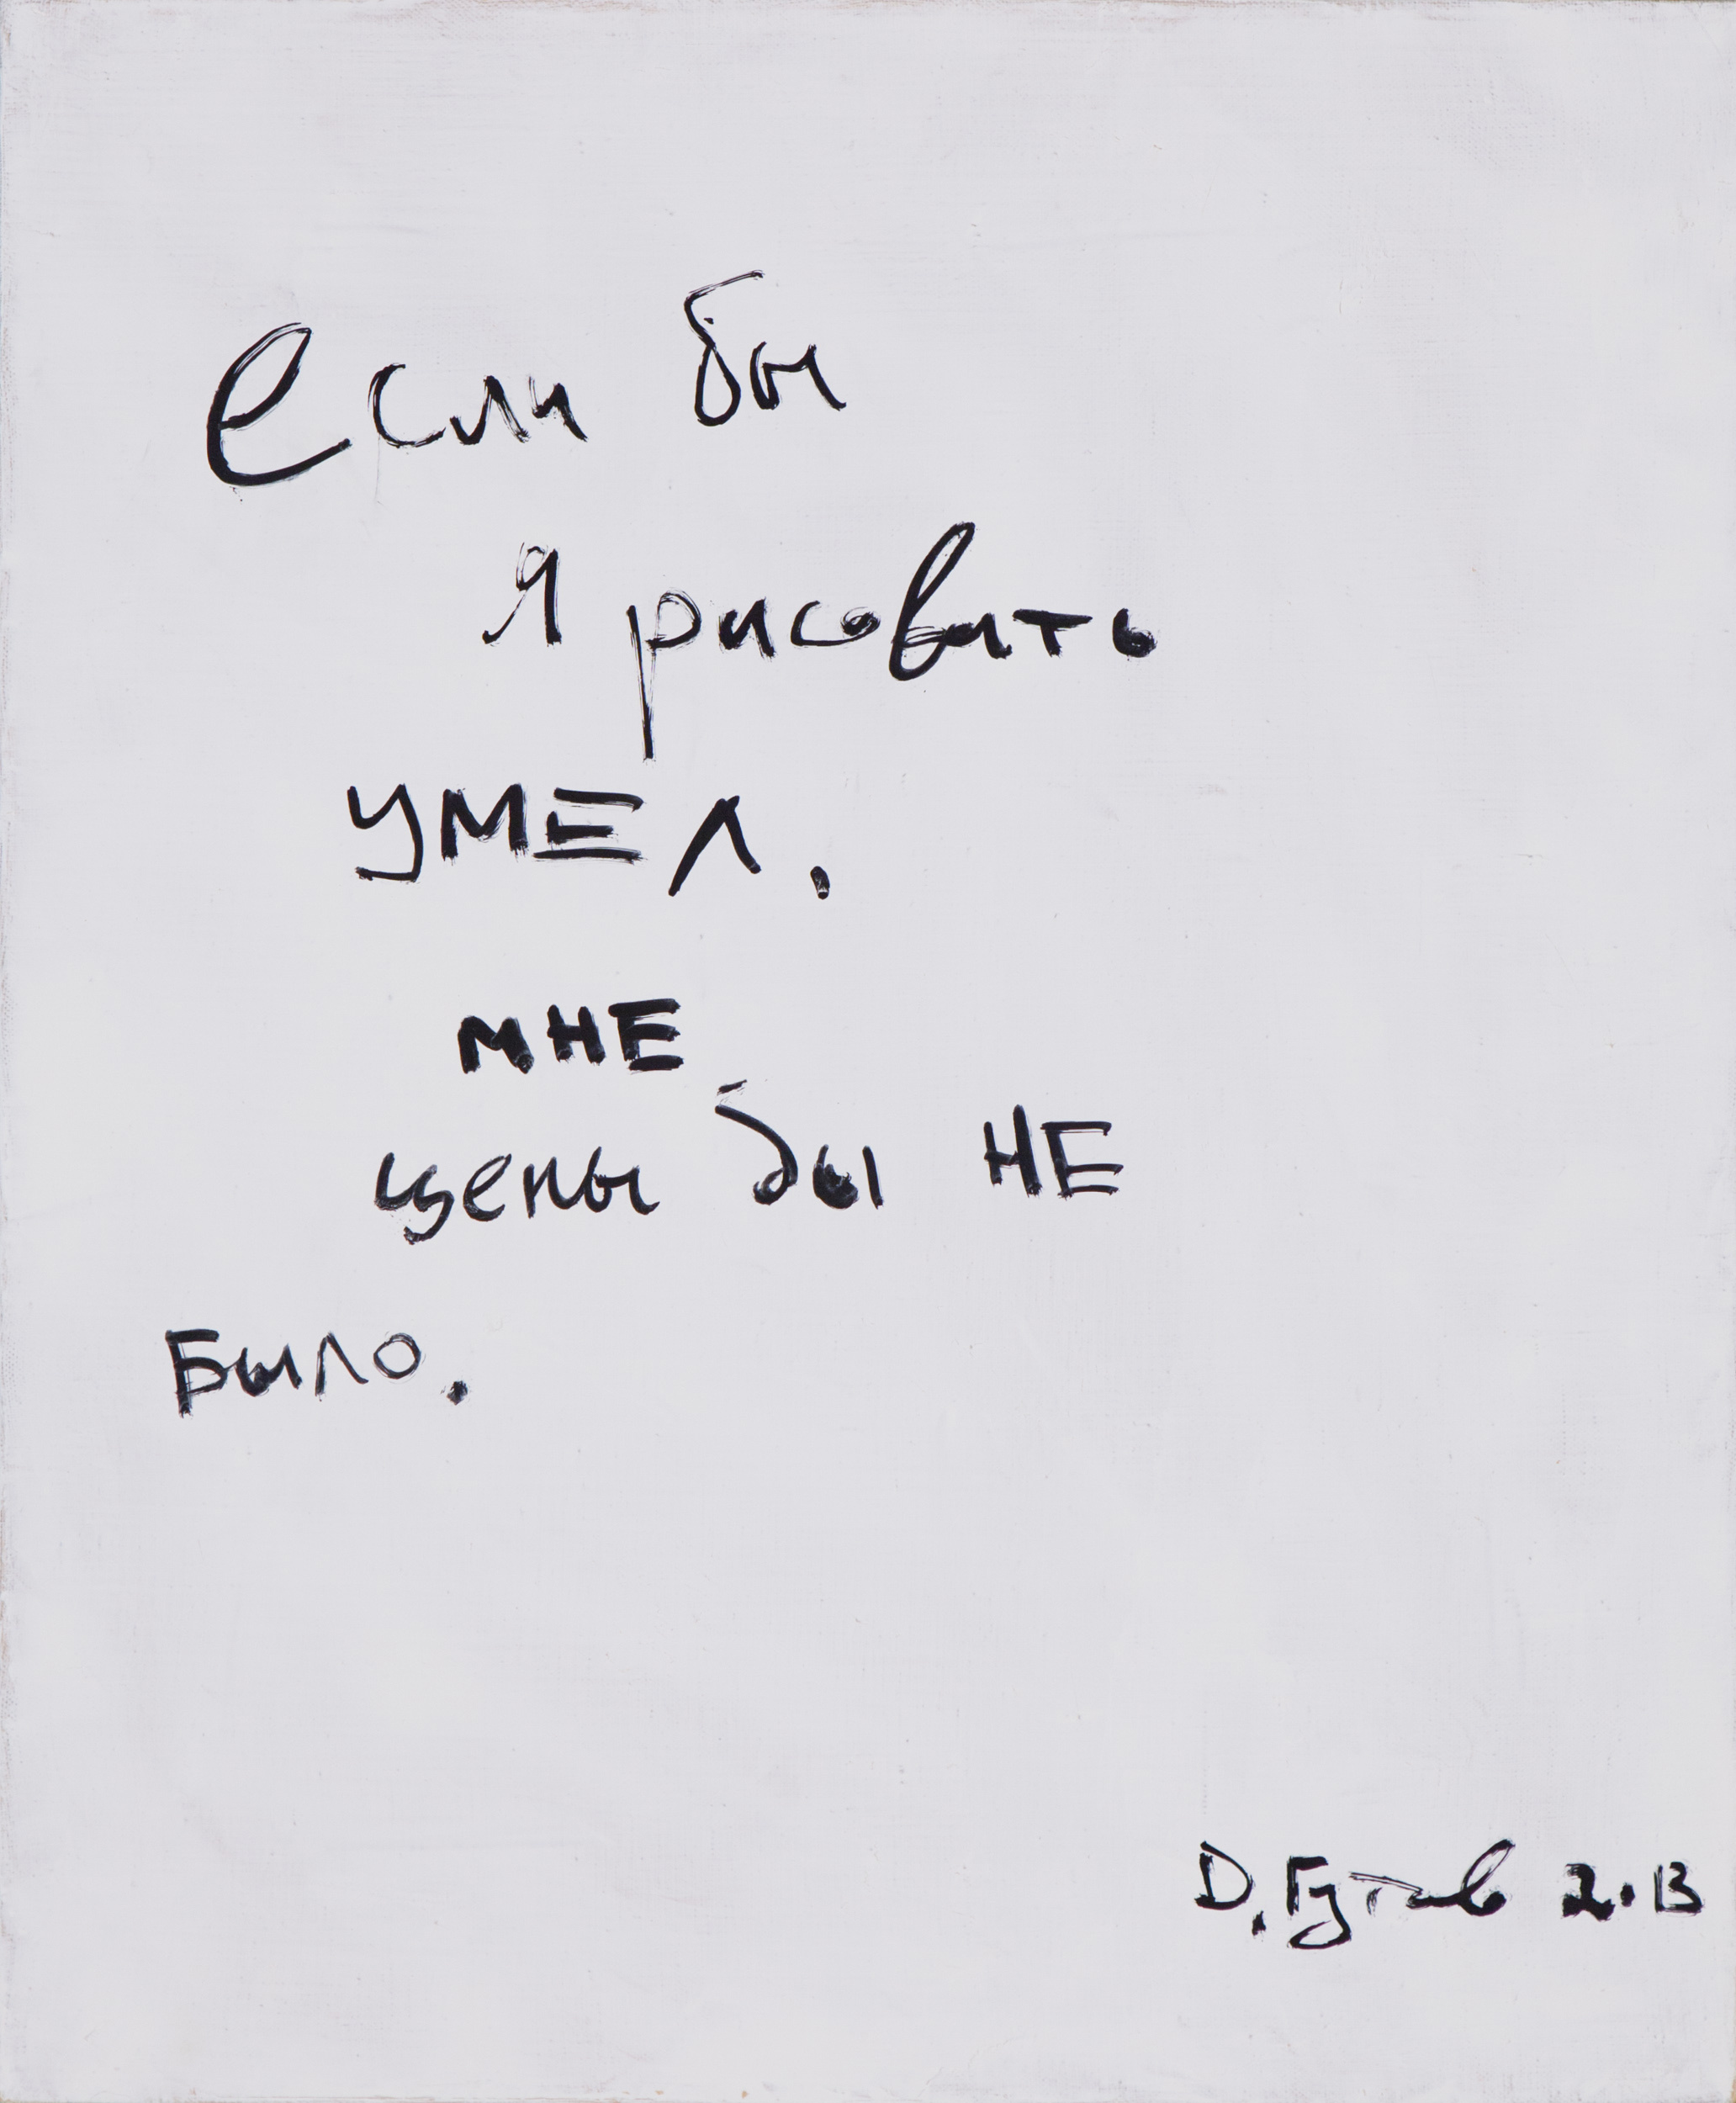 если бы
я рисовать
УМЕЛ,
МНЕ
цены бы НЕ
Было.
D. Гутов 2.13